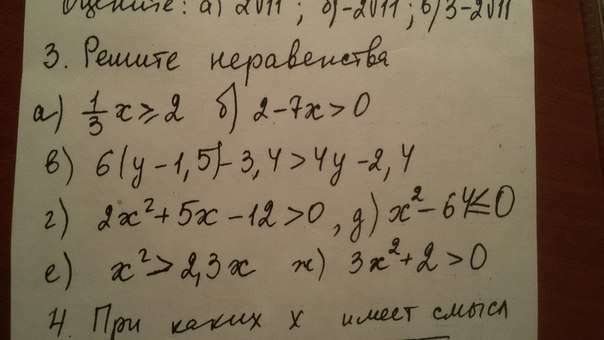 Оцените: а) 2√11 ; б) -2√11 ; в) 3-2√11
3. Решите неравенства
а) 1/3 x ⩾ 2 б) 2-7x > 0
в) 6(y-1,5)-3,4 > 4y-2,4
г) 2x²+5x-12 > 0, д) x²-64 ≤ 0
е) x² > 2,3x ж) 3x²+2 > 0
4. При каких x имеет смысл